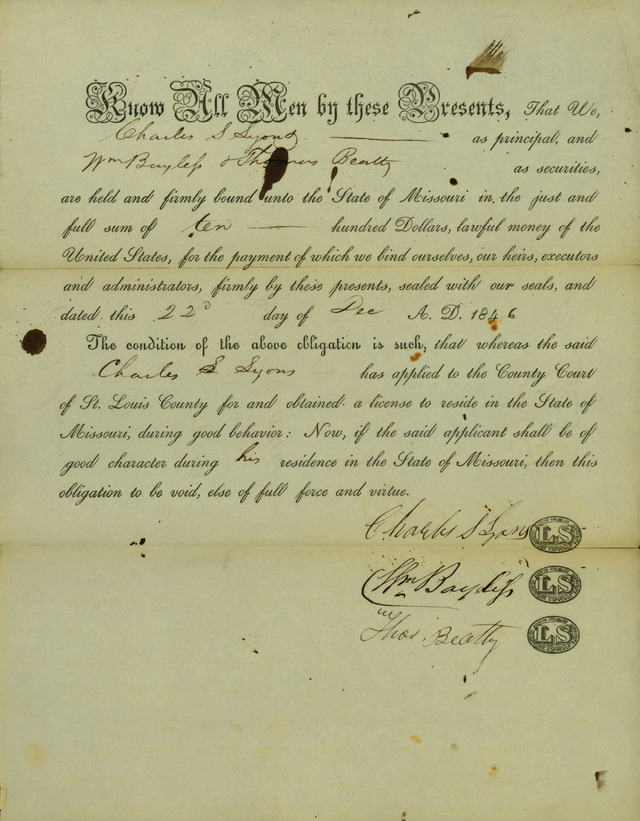 Know All Men by these Presents, That We,
Charles S Lyons as principal, and
Wm Bayless & Thomas Beatty as securities,
are held and firmly bound unto the State of Missouri in the just and
full sum of ten hundred Dollars, lawful money of the
United States, for the payment of which we bind ourselves, our heirs, executors
and administrators, firmly by these presents, sealed with our seals, and
dated this 22d day of Dec A. D. 1846
The condition of the above obligation is such, that whereas the said
Charles S Lyons has applied to the County Court
of St. Louis County for and obtained a license to reside in the State of
Missouri, during good behavior: Now, if the said applicant shall be of
good character during his residence in the State of Missouri, then this
obligation to be void, else of full force and virtue.
Charles S Lyons LS
Wm Bayless LS
Thos. Beatty LS